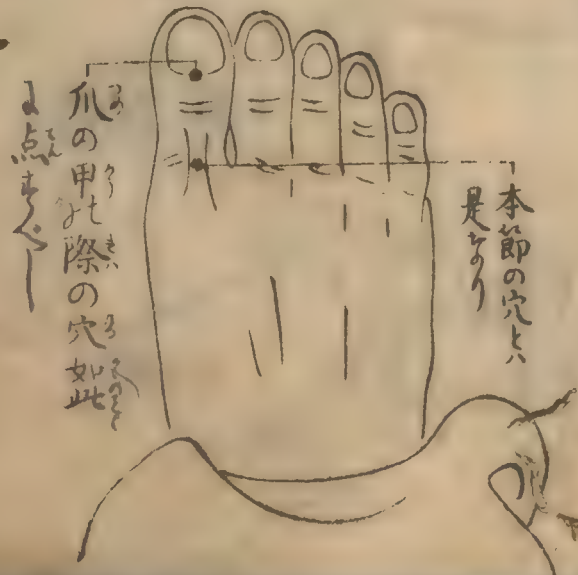 本節の穴とハ
是なり
爪の甲の際の穴如此
に点すべし